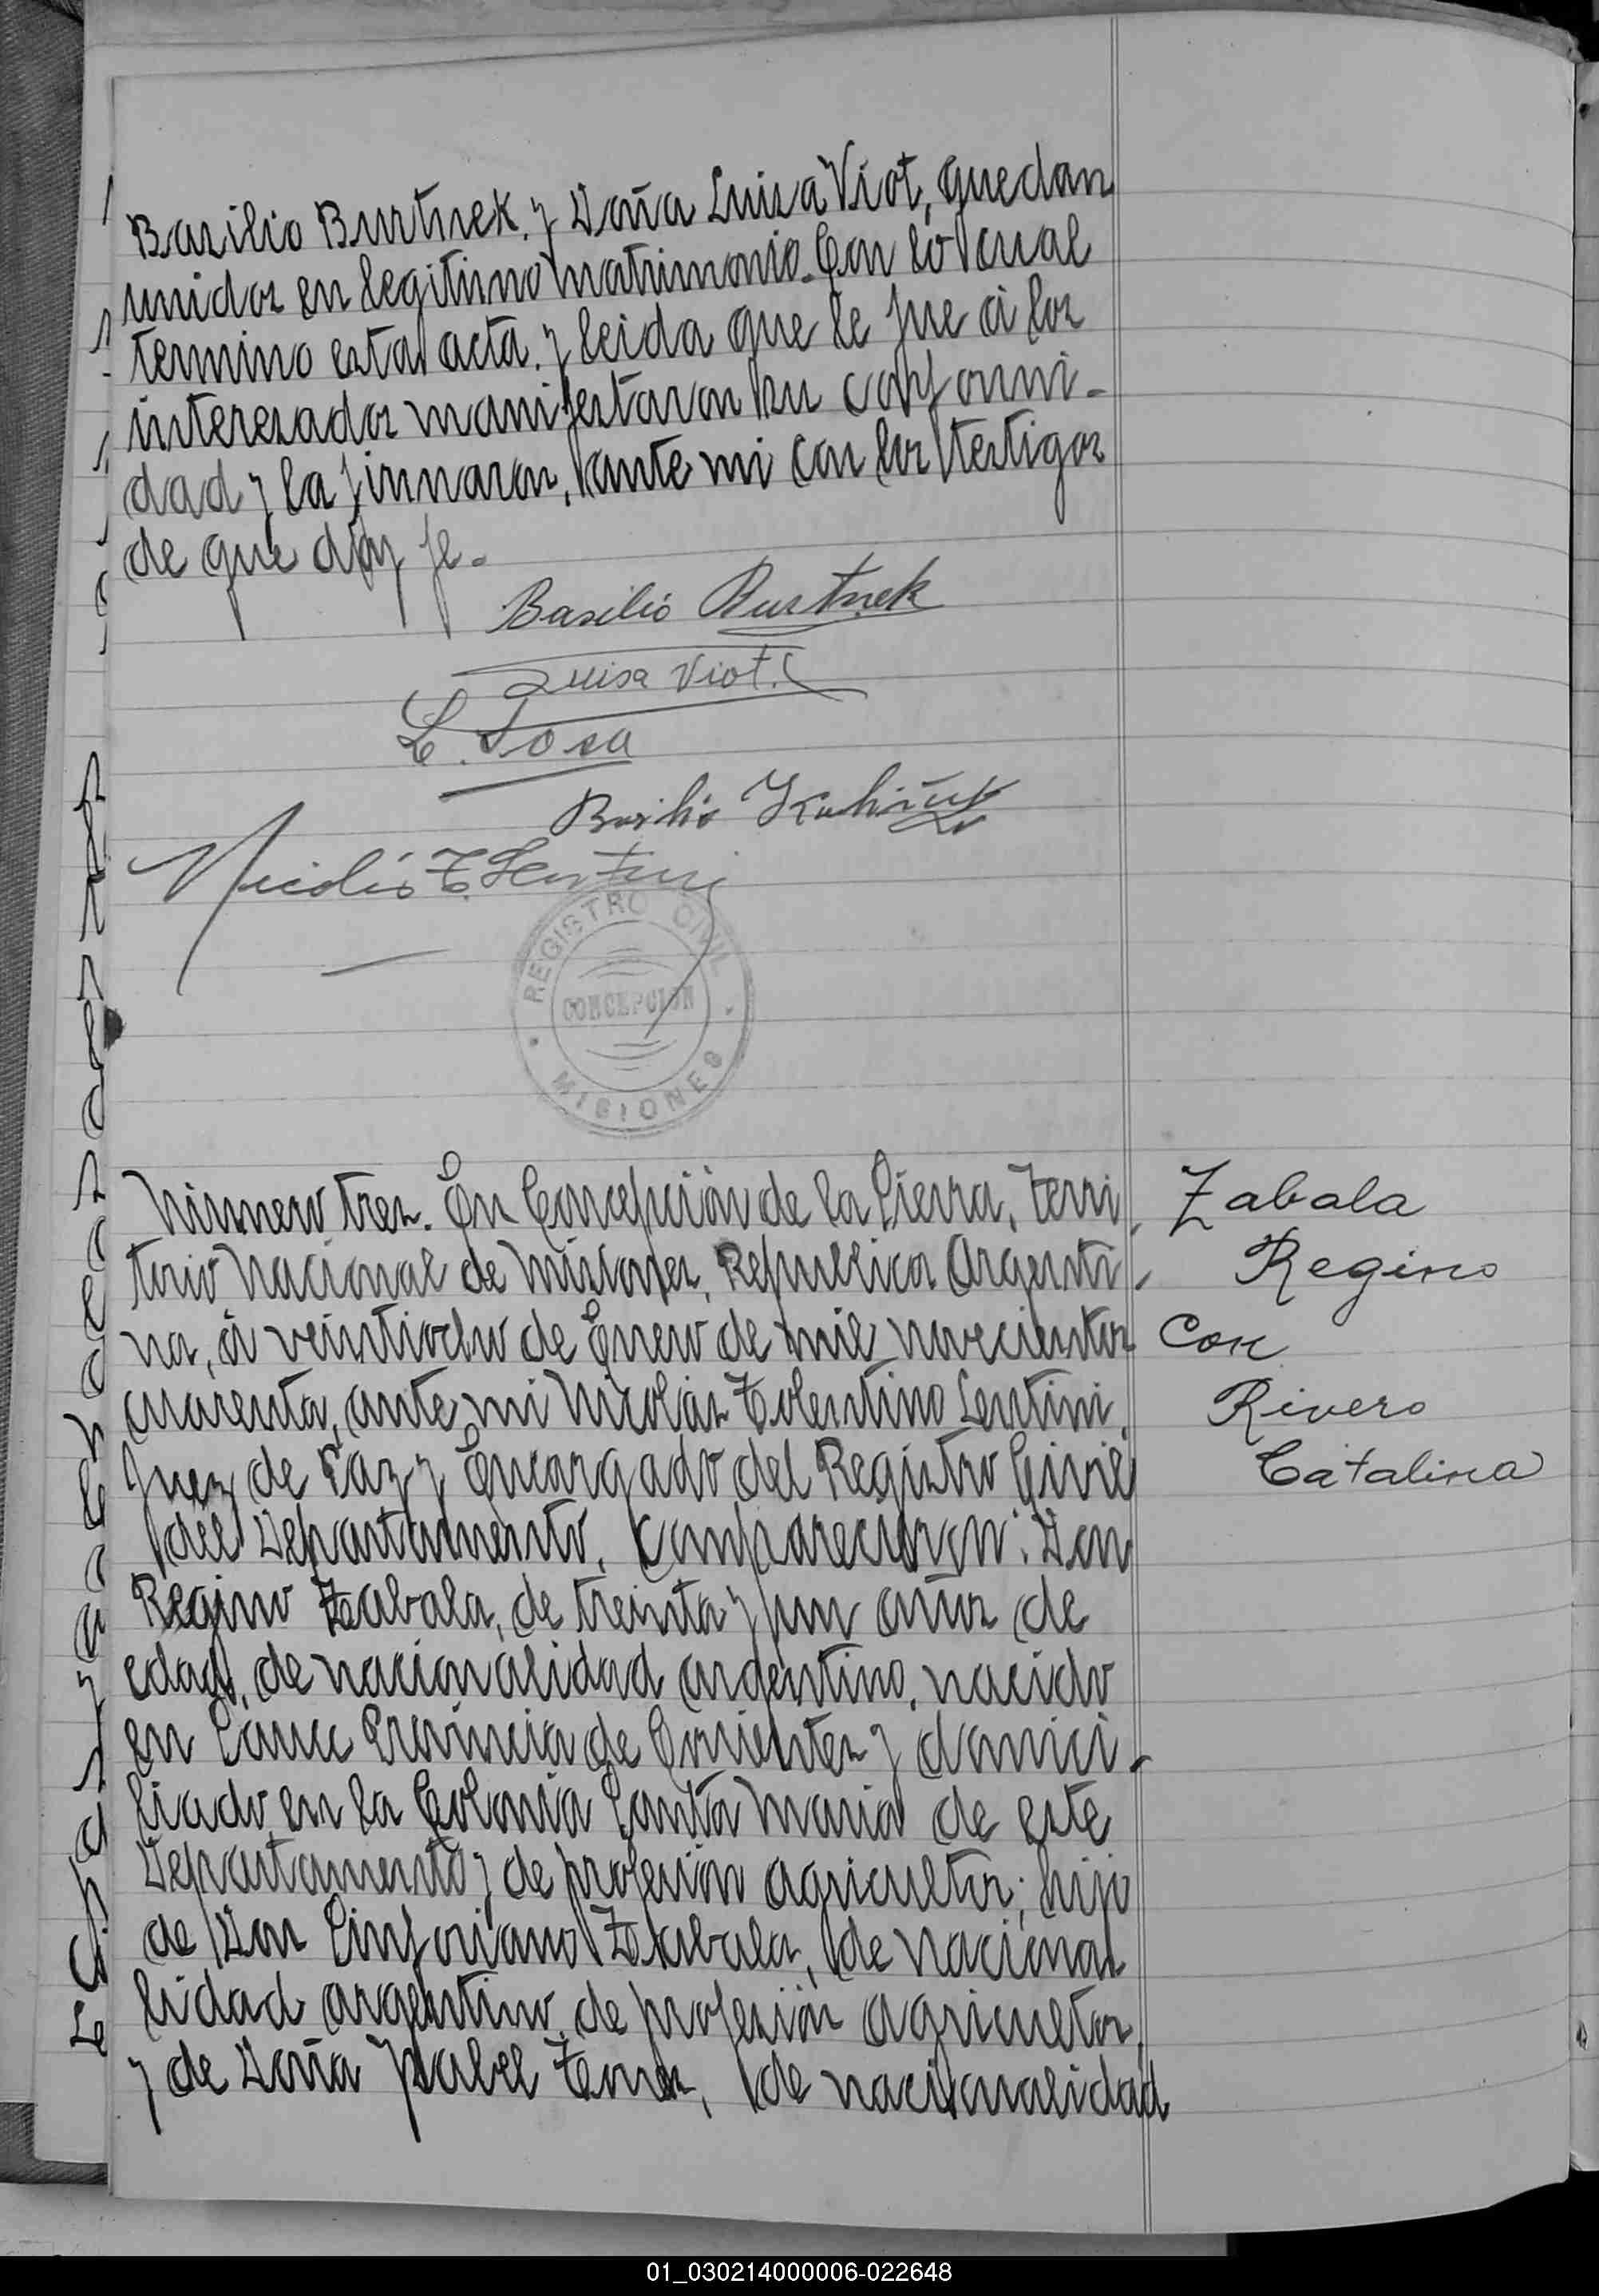 Basilio Burtnek. y Doña Luisa Viot, quedan
unidos en legitimo matrimonio. Con lo cual
termino esta acta. y leida que le fue á los
interesados manifestaron su conformi-
dad y la firmaron, ante mi con los testigos
de que doy fe.
Basilio Burtnek
Luisa Viot.
L. Sosa
Basilio
Nicolás T. Lentini
REGISTRO CIVIL
CONCEPCION
MISIONES
Número tres. En Concepción de la Sierra, Terri
torio Nacional de Misiones, Republica Argenti-
na, á veintiocho de Enero de mil novecientos
cuarenta, ante mi Nicolás Tolentino Lentini.
Juez de Paz y Encargado del Registro Civil
del Departamento, Comparecieron: Don
Regino Zabala, de treinta y un años de
edad, de nacionalidad argentino, nacido
en Provincia de Corrientes y domici-
liado en la Colonia Santa Maria de este
Departamento y de profesión agricultor; hijo
de Don Sinforiano Zabala, de naciona
lidad argentino, de profesión agricultor,
y de Doña Isabel de nacionalidad
Zabala
Regino
Con
Rivero
Catalina
01_030214000006-022648